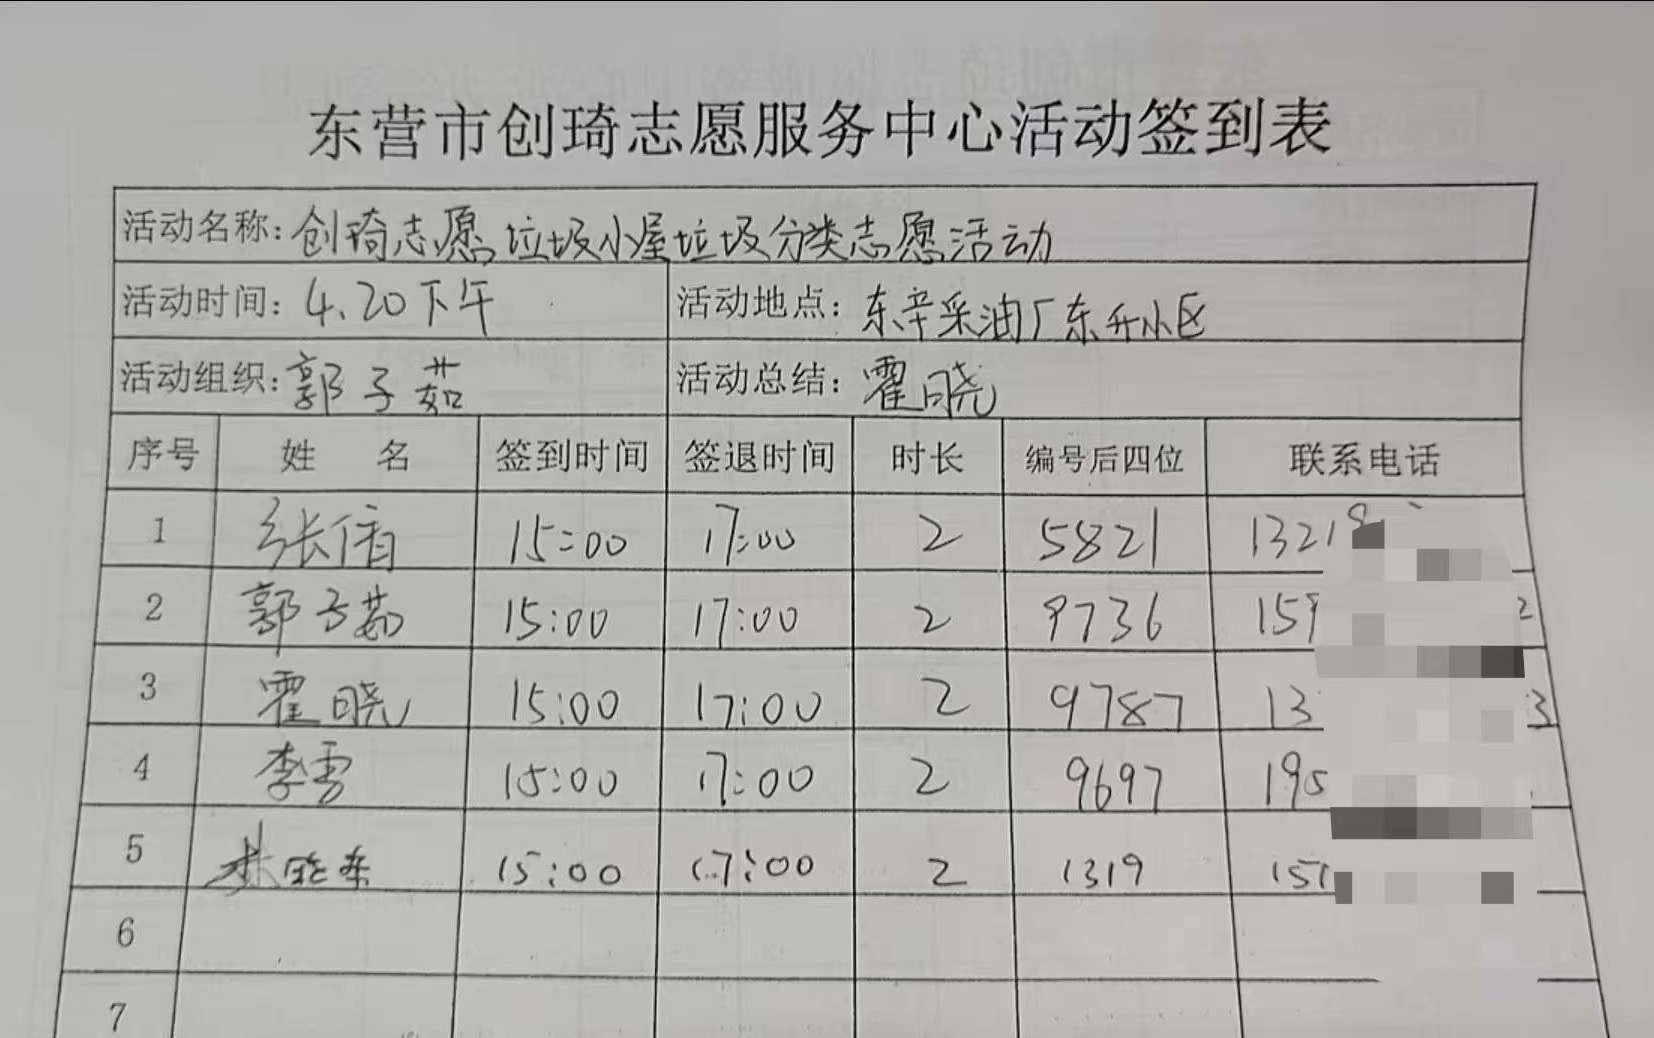 东营市创琦志愿服务中心活动签到表
活动名称: 创琦志愿垃圾小屋垃圾分类志愿活动
活动时间: 4.20下午 活动地点: 东辛采油厂东升小区
活动组织: 郭子茹 活动总结: 霍晓
序号 姓 名 签到时间 签退时间 时长 编号后四位 联系电话
1 张倩 15:00 17:00 2 5821 1321
2 郭子茹 15:00 17:00 2 9736 159 2
3 霍晓 15:00 17:00 2 9787 13 3
4 李雪 15:00 17:00 2 9697 195
5 晓东 15:00 17:00 2 1319 151
6
7